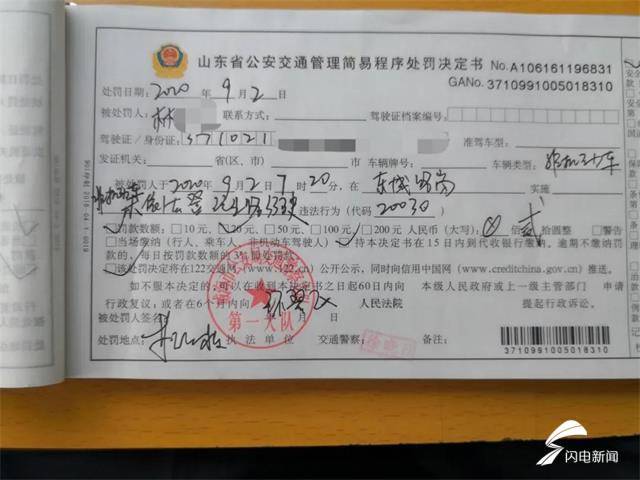 山东省公安交通管理简易程序处罚决定书 No.A106161196831
GANo. 3710991005018310
处罚日期: 2020 年 9 月 2 日
被处罚人: 林 联系方式: 驾驶证档案编号:
驾驶证/身份证: 371021 准驾车型:
发证机关: 省(区、市) 市 车辆牌号: 车辆类型: 非机动车
被处罚人于 2020 年 9 月 2 日 7 时 20 分, 在 东城路 实施
违法行为(代码 20030 )
罚款数额: □10元、□20元、□50元、□100元、□200元 人民币(大写): 佰 贰 拾圆整 □警告
□当场缴纳(行人、乘车人、非机动车驾驶人) 持本决定书在15日内到代收银行缴纳。逾期不缴纳罚
款的, 每日按罚款数额的3%加处罚款。
□该处罚决定将在122交通网(www.122.cn)公开公示, 同时向信用中国网(www.creditchina.gov.cn)推送。
如不服本决定的, 可以在收到本决定书之日起60日内向 本级人民政府或上一级主管部门 申请
行政复议; 或者在6个月内向 环翠区 人民法院 提起行政诉讼。
被处罚人签名: 月 日
第一大队
处罚地点: 执法单位 交通警察: 备注:
3710991005018310
闪电新闻